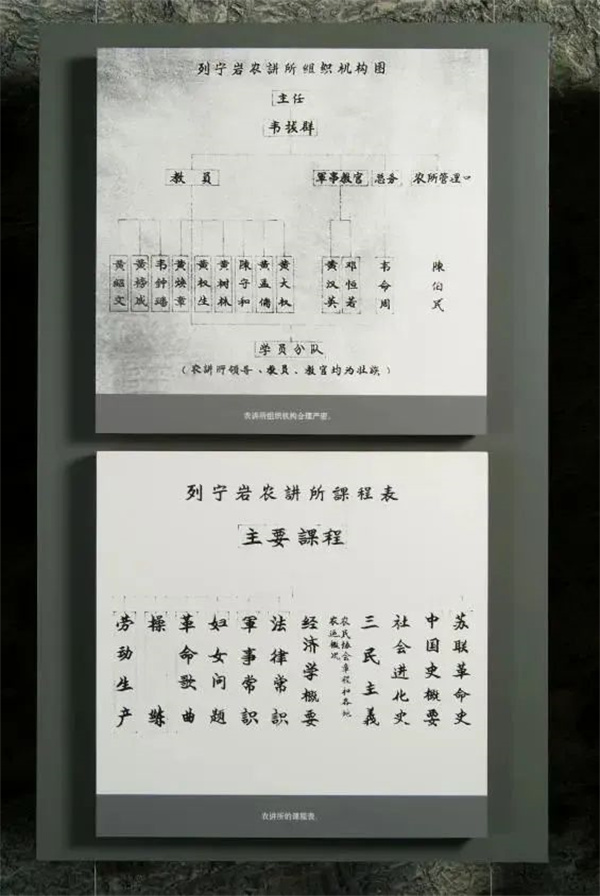 列宁岩农講所组织机构图
主任
韦拔群
教員
軍事教官
总务
农所管理
黄昭文
黄榜成
韦钟璠
黄焕章
黄权生
黄树林
陳守和
黄孟儔
黄大权
黄汉英
邓恒若
韦命周
陳伯民
学员分队
(农講所领导、教員、教官均为壮族)
农讲所组织机构合理严密。
列宁岩农講所課程表
主要課程
苏联革命史
中国史概要
社会进化史
三民主義
农民协会章程和各地
农运概况
经济学概要
法律常識
軍事常識
妇女问题
革命歌曲
操练
劳动生产
农讲所的课程表。